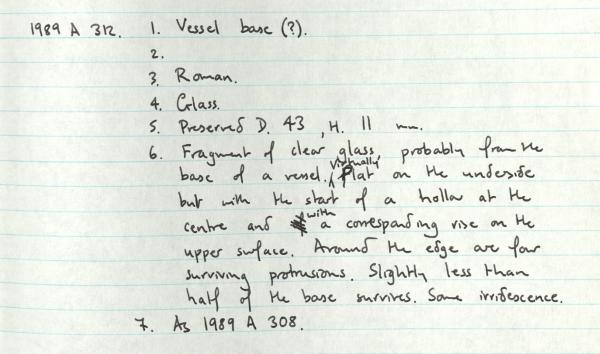 1989 A 312. 1. Vessel base (?).
2.
3. Roman.
4. Glass.
5. Preserved D. 43, H. 11 mm.
6. Fragment of clear glass, probably from the
base of a vessel. virtually flat on the underside
but with the start of a hollow at the
centre and with a corresponding rise on the
upper surface. Around the edge are four
surviving protrusions. Slightly less than
half of the base survives. Some irridescence.
7. As 1989 A 308.